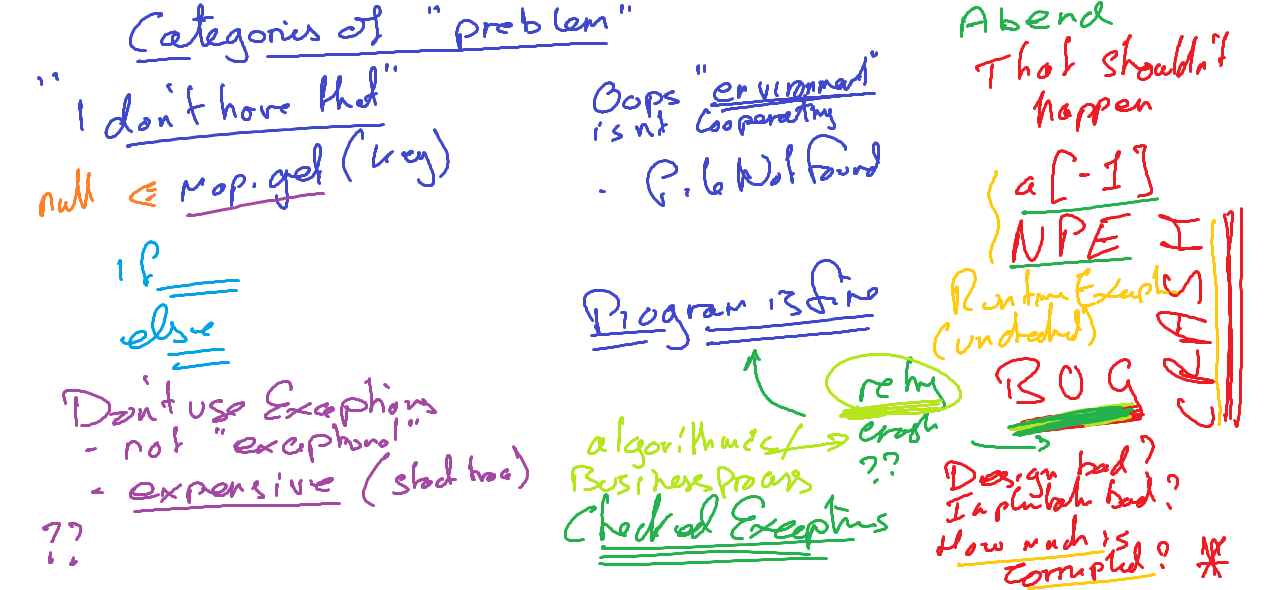 Categories of "problem"
"I don't have that"
null ⇐ map.get (key)
if
else
Don't use Exceptions
- not "exceptional"
- expensive (stack trace)
??
Oops "environment"
isnt cooperating
- FileNotFound
Program is fine
retry
crash
??
algorithmics/
Business Process
Checked Exceptions
Abend
That shouldn't
happen
a[-1]
NPE
Runtime Except
(unchecked)
BUG
CRASH
Design bad?
Implentatn bad?
How much is
corrupted? *